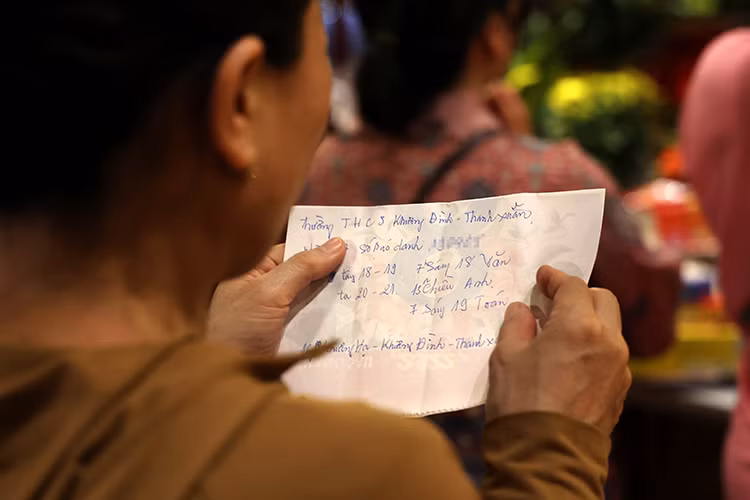 trường THCS Khương Đình - Thanh xuân.
Số báo danh
tây 18 - 19 7 Sáng 18 Văn
ta 20 - 21 15 Chiều Anh.
7 Sáng 19 Toán
Hạ - Khương Đình - Thanh